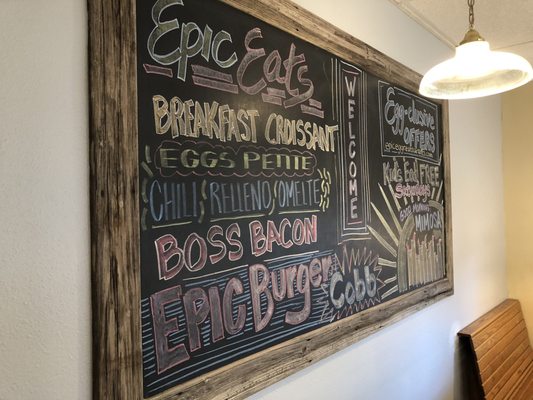 Epic Eats
BREAKFAST CROISSANT
EGGS PENTE
CHILI RELLENO OMELTE
BOSS BACON
EPIC BURGER
Cobb
WELCOME
Egg-clusive
OFFERS
Kids Eat FREE
Saturdays
GOOD MORNING
MIMOSA